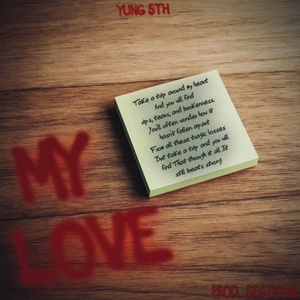 YUNG 5TH
Take a trip around my heart
And you will find
rips, tears, and brokenness.
You'll often wonder how it
hasn't fallen apart
From all these tragic losses
But take a trip and you will
find That though it all It
still beats strong
MY
LOVE
PROD.